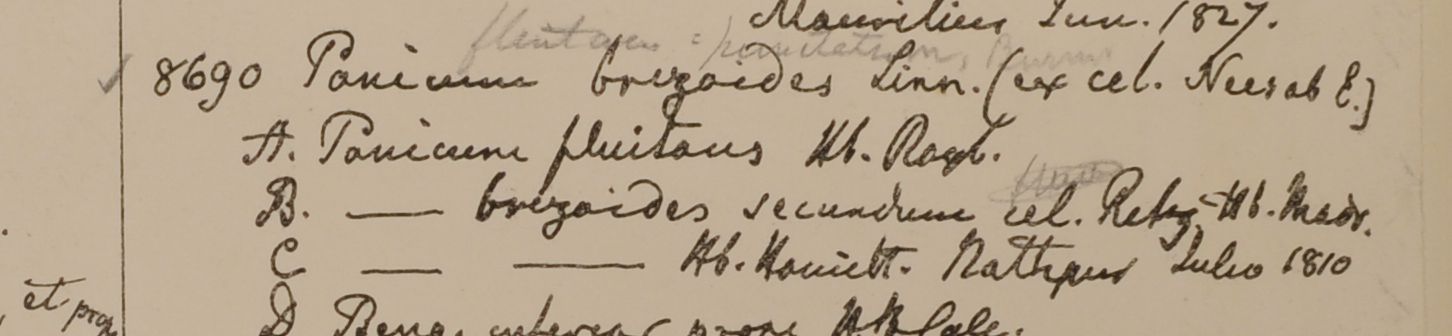 Mauritius Jun. 1827.
fluitans = punctatum, Burm
8690 Panicum brizoides Linn. (ex cel. Nees ab E.)
A. Panicum fluitans Hb. Roxb.
B. — brizoides secundum cel. Retz - Hb. Madr.
C — — Hb. Hamilt. Nathpur Julio 1810
et prop
D Beng. prope Hb Calc.